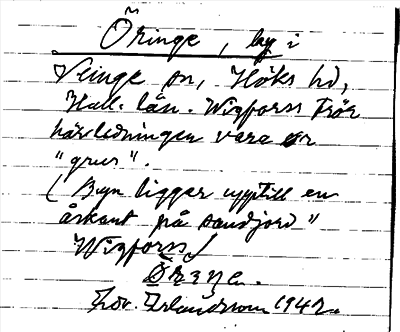 Öringe, by i
Veinge sn, Höks hd,
Hall. län. Wigforss tror
härledningen vara ør
"grus".
(Byn ligger upptill en
åskant på sandjord"
Wigforss)
Lov. Erlandsson 1942.